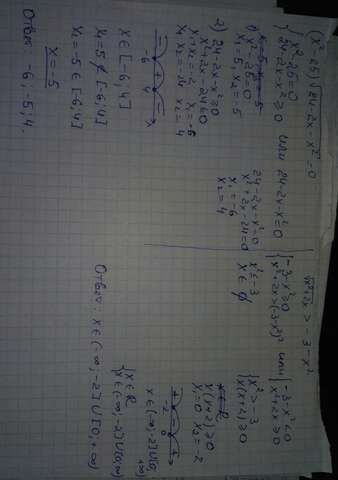 (x²-25)√24-2x-x²=0
{x²-25=0
24-2x-x²≥0 или 24-2x-x²=0
1) x²-25=0
x₁=5, x₂=-5
2) 24-2x-x²≥0
x²+2x-24≤0
x₁+x₂=-2 x₁=-6
x₁·x₂=-24 x₂=4
-6 4 x
x∈[-6;4]
x₁=5∉[-6;4]
x₂=-5∈[-6;4]
x=-5
24-2x-x²=0
x²+2x-24=0
x₁=-6
x₂=4
Ответ: -6; -5; 4.
√x²+2x > -3-x²
{-3-x²≥0
x²+2x>(-3-x²)² или {-3-x²<0
x²+2x≥0
x²≤-3
x∈∅
{x²>-3
x(x+2)≥0
x∈R
x(x+2)≥0
x=0 x₂=-2
-2 0 x
x∈(-∞;-2]∪[0;+∞)
{x∈R
x∈(-∞;-2]∪[0;∞)
Ответ: x∈(-∞;-2]∪[0;+∞)